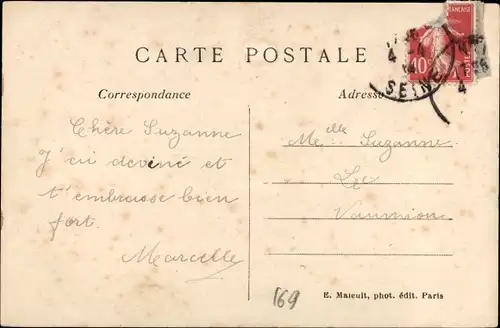 CARTE POSTALE
Correspondance
Adresse
Chère Suzanne
J'ai deviné et
t'embrasse bien
fort.
Marcelle
Melle Suzanne
Vaumion
169
E. Maleuit, phot. édit. Paris
FRANÇAISE
POSTES
10
SEINE